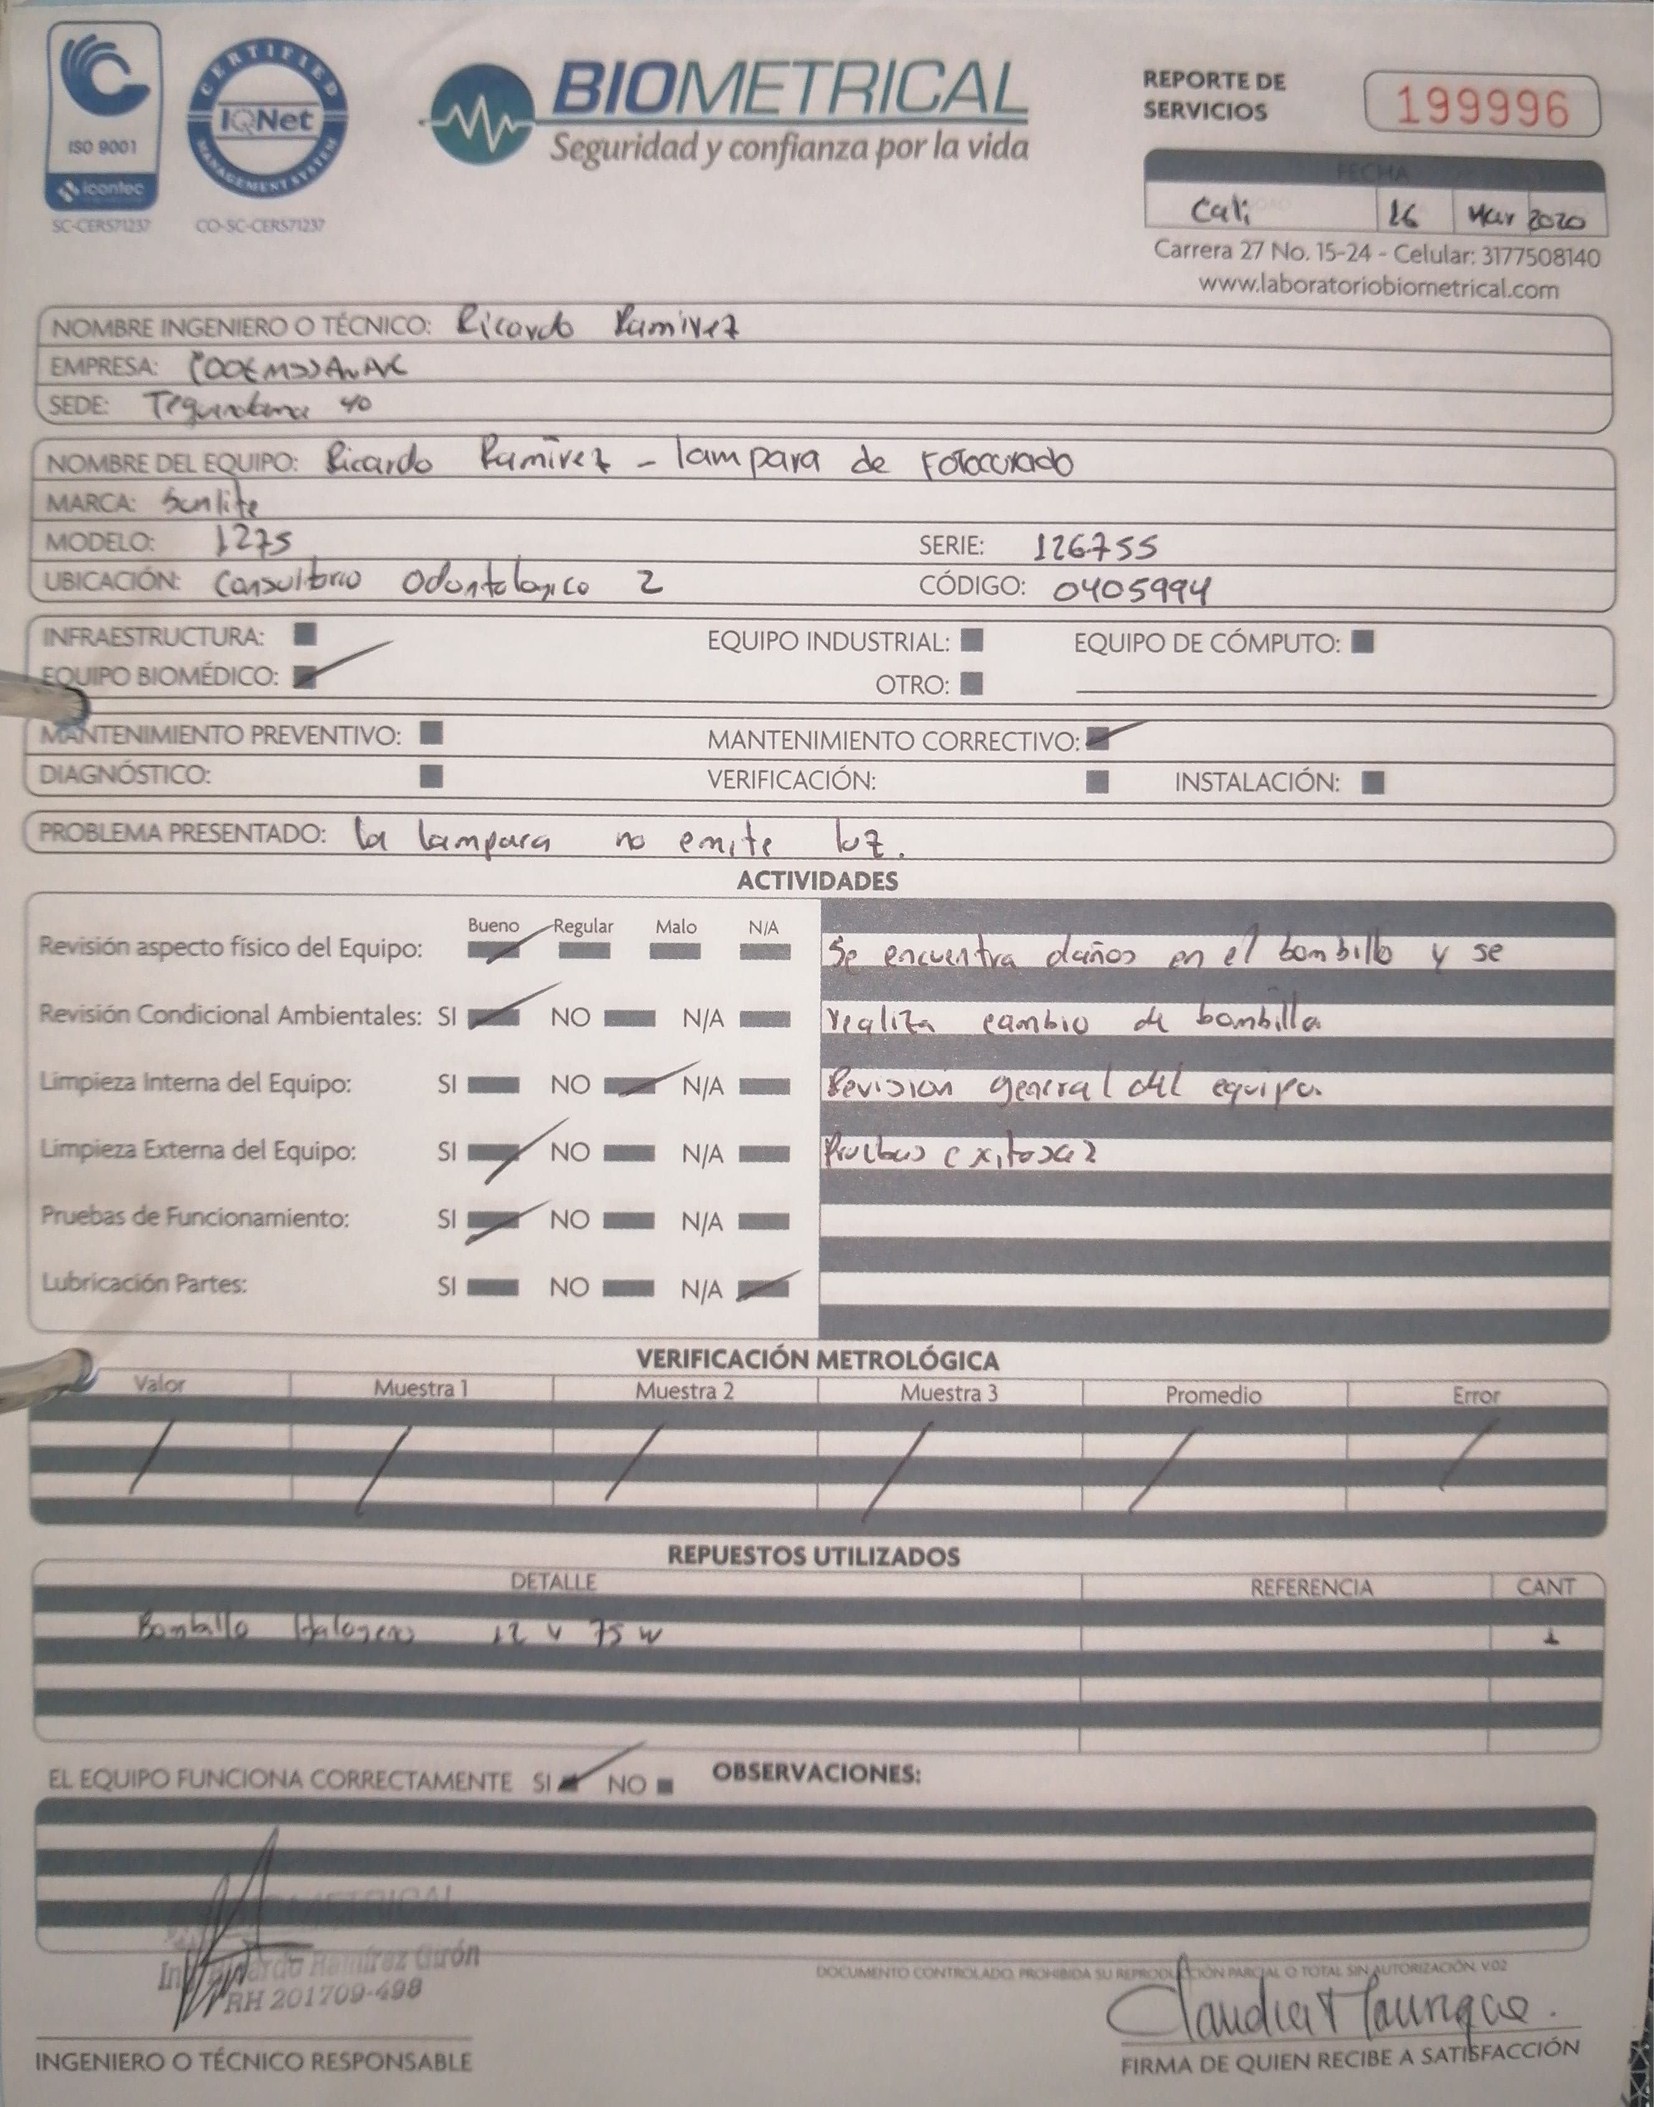 ISO 9001
icontec
SC-CER571237
CERTIFIED
IQNet
MANAGEMENT SYSTEM
CO-SC-CER571237
BIOMETRICAL
Seguridad y confianza por la vida
REPORTE DE
SERVICIOS
199996
FECHA
Cali 16 Mar 2020
Carrera 27 No. 15-24 - Celular: 3177508140
www.laboratoriobiometrical.com
NOMBRE INGENIERO O TÉCNICO: Ricardo Ramirez
EMPRESA:
SEDE: 40
NOMBRE DEL EQUIPO: Ricardo Ramirez - lampara de Fotocurado
MARCA: Sunlite
MODELO: 1275 SERIE: 126755
UBICACIÓN: Consultorio Odontologico 2 CÓDIGO: 0405994
INFRAESTRUCTURA: EQUIPO INDUSTRIAL: EQUIPO DE CÓMPUTO:
EQUIPO BIOMÉDICO: OTRO:
MANTENIMIENTO PREVENTIVO: MANTENIMIENTO CORRECTIVO:
DIAGNÓSTICO: VERIFICACIÓN: INSTALACIÓN:
PROBLEMA PRESENTADO: la lampara no emite luz.
ACTIVIDADES
Bueno Regular Malo N/A
Revisión aspecto físico del Equipo: Se encuentra daños en el bombillo y se
Revisión Condicional Ambientales: SI NO N/A realiza cambio de bombilla
Limpieza Interna del Equipo: SI NO N/A Revision general del equipo.
Limpieza Externa del Equipo: SI NO N/A Pruebas exitosas
Pruebas de Funcionamiento: SI NO N/A
Lubricación Partes: SI NO N/A
VERIFICACIÓN METROLÓGICA
Valor Muestra 1 Muestra 2 Muestra 3 Promedio Error
REPUESTOS UTILIZADOS
DETALLE REFERENCIA CANT
Bombillo Halogeno 12 v 75 w 1
EL EQUIPO FUNCIONA CORRECTAMENTE SI NO OBSERVACIONES:
BIOMETRICAL
Ing. Ricardo Ramírez Girón
RH 201709-498
DOCUMENTO CONTROLADO, PROHIBIDA SU REPRODUCCIÓN PARCIAL O TOTAL SIN AUTORIZACIÓN. V.02
Claudia Manrique.
INGENIERO O TÉCNICO RESPONSABLE
FIRMA DE QUIEN RECIBE A SATISFACCIÓN